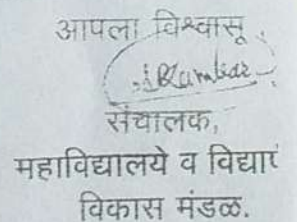 आपला विश्वासू,
संचालक,
महाविद्यालये व
विकास मंडळ.